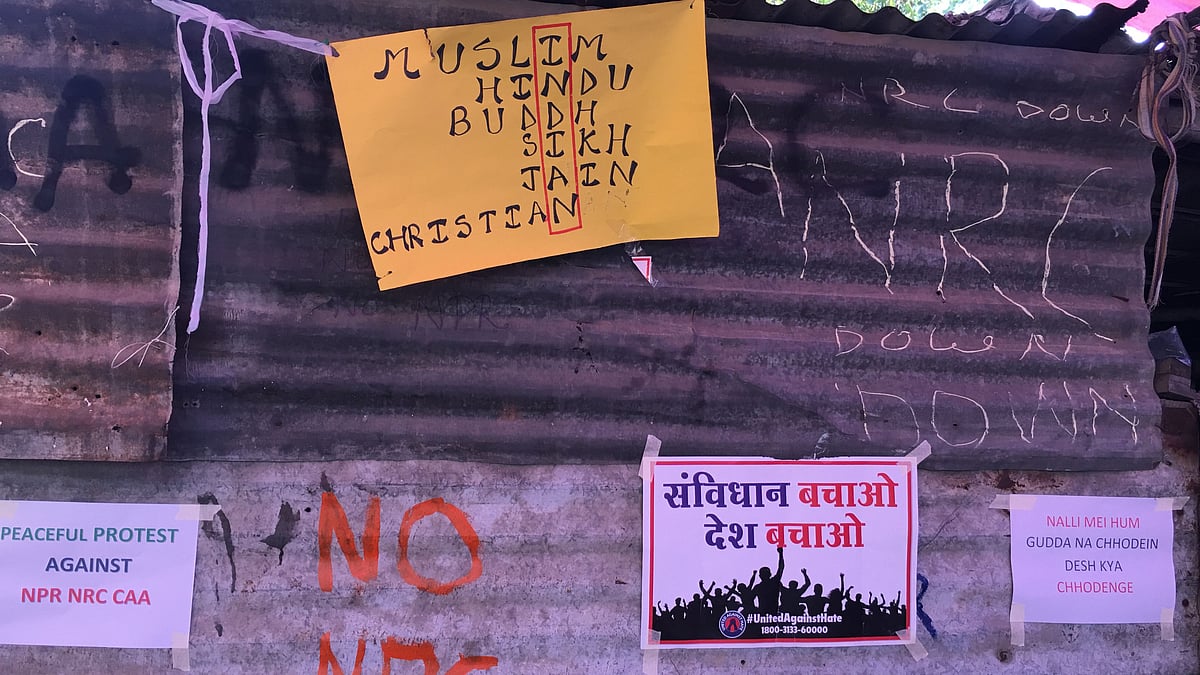 MUSLIM
HINDU
BUDDH
SIKH
JAIN
CHRISTIAN
NRC DOWN
NRC
DOWN
DOWN
NO NPR
PEACEFUL PROTEST
AGAINST
NPR NRC CAA
NO
संविधान बचाओ
देश बचाओ
#UnitedAgainstHate
1800-3133-60000
NALLI MEI HUM
GUDDA NA CHHODEIN
DESH KYA
CHHODENGE